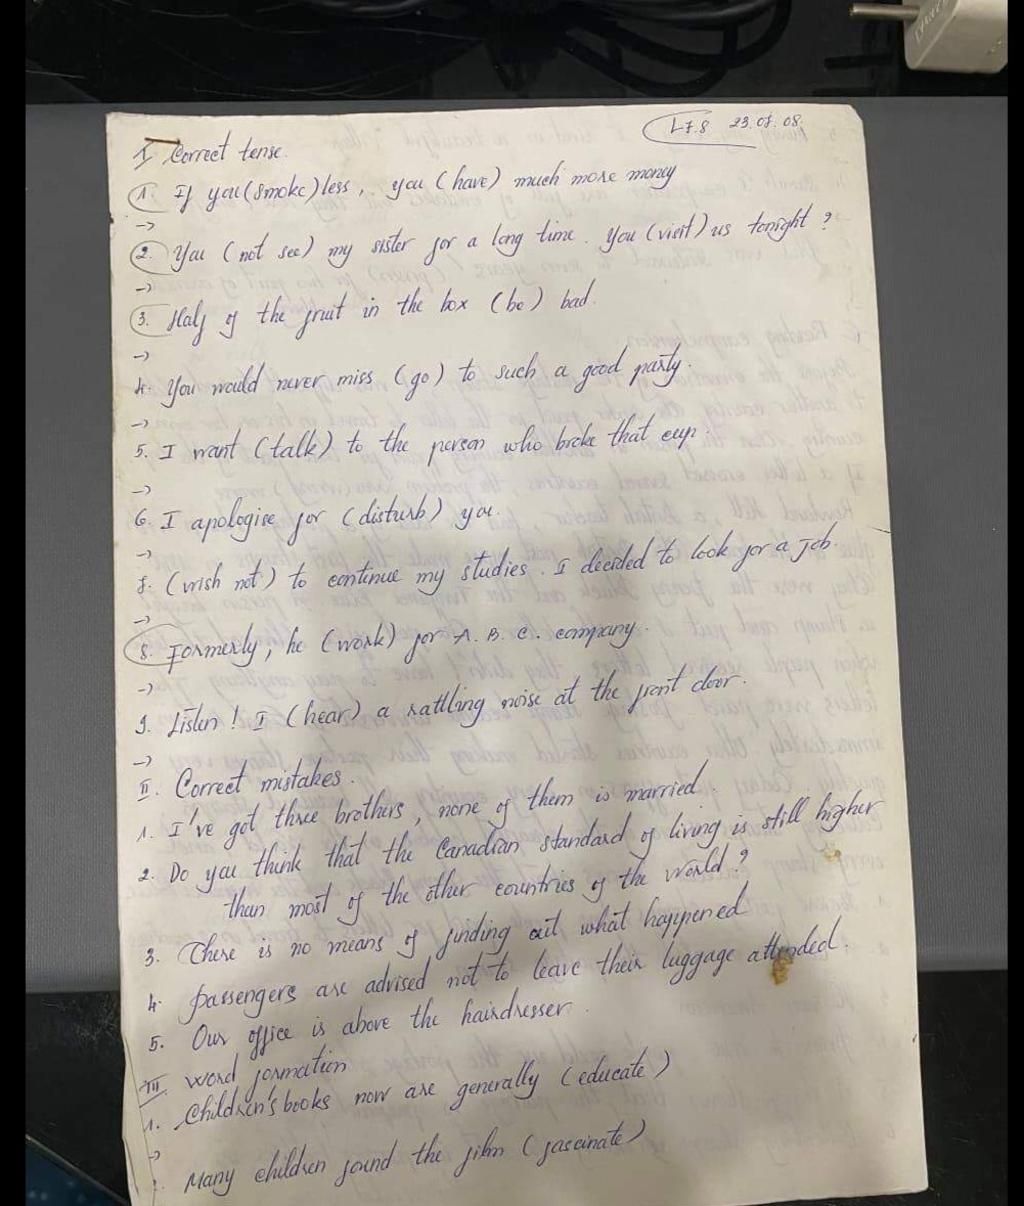 L7.8 23.07.08.
I Correct tense.
1. If you (smoke) less, you (have) much more money
->
2. You (not see) my sister for a long time. You (visit) us tonight?
->
3. Half of the fruit in the box (be) bad.
->
4. You would never miss (go) to such a good party.
->
5. I want (talk) to the person who broke that cup.
->
6. I apologise for (disturb) you.
->
7. (wish not) to continue my studies. I decided to look for a job.
->
8. Formerly, he (work) for A.B.C. company.
->
9. Listen! I (hear) a rattling noise at the front door.
->
II. Correct mistakes.
1. I've got three brothers, none of them is married.
2. Do you think that the Canadian standard of living is still higher
than most of the other countries of the world?
3. There is no means of finding out what happened
4. Passengers are advised not to leave their luggage attended.
5. Our office is above the hairdresser.
III word formation
1. Children's books now are generally (educate)
->
Many children found the film (fascinate)